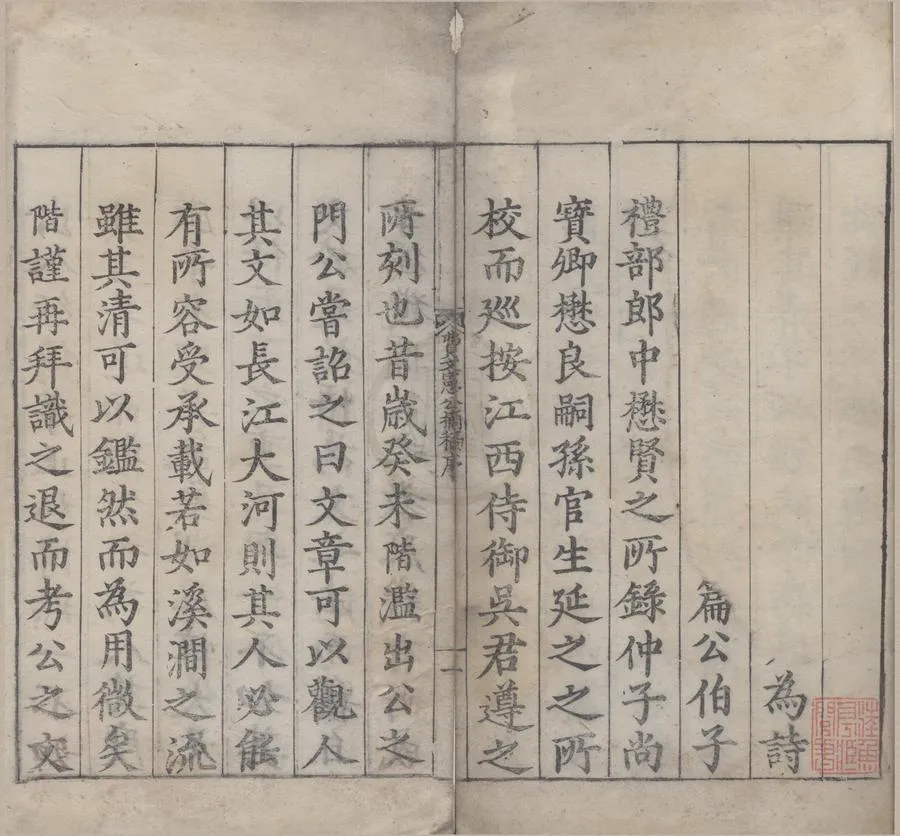 為詩
篇公伯子
禮部郎中懋賢之所錄仲子尚
寶卿懋良嗣孫官生延之之所
校而巡按江西侍御吳君遵之
費文憲公摘稿序
二
所刻也昔歲癸未階濫出公之
門公嘗詔之曰文章可以觀人
其文如長江大河則其人必能
有所容受承載若如溪澗之流
雖其清可以鑑然而為用微矣
階謹再拜識之退而考公之文